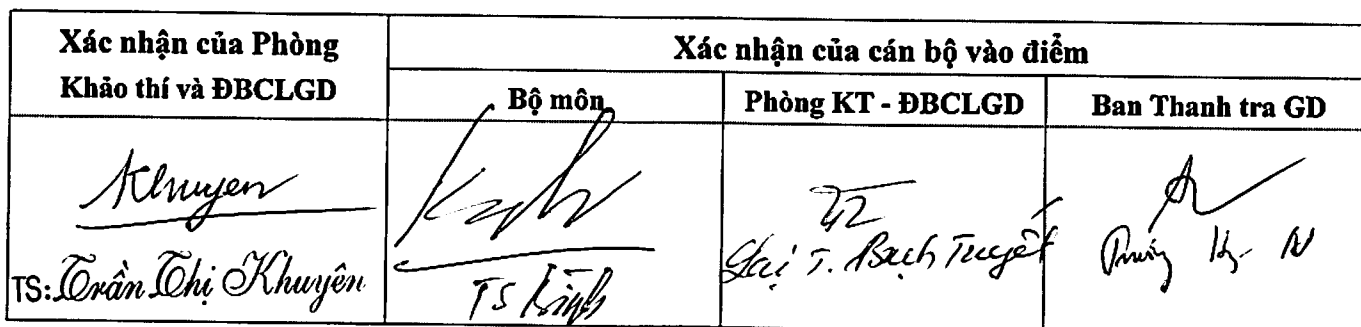 Xác nhận của Phòng
Khảo thí và ĐBCLGD
Xác nhận của cán bộ vào điểm
Bộ môn
Phòng KT - ĐBCLGD
Ban Thanh tra GD
Khuyen
TS: Trần Thị Khuyên
TS
Lại T. Bạch Tuyết